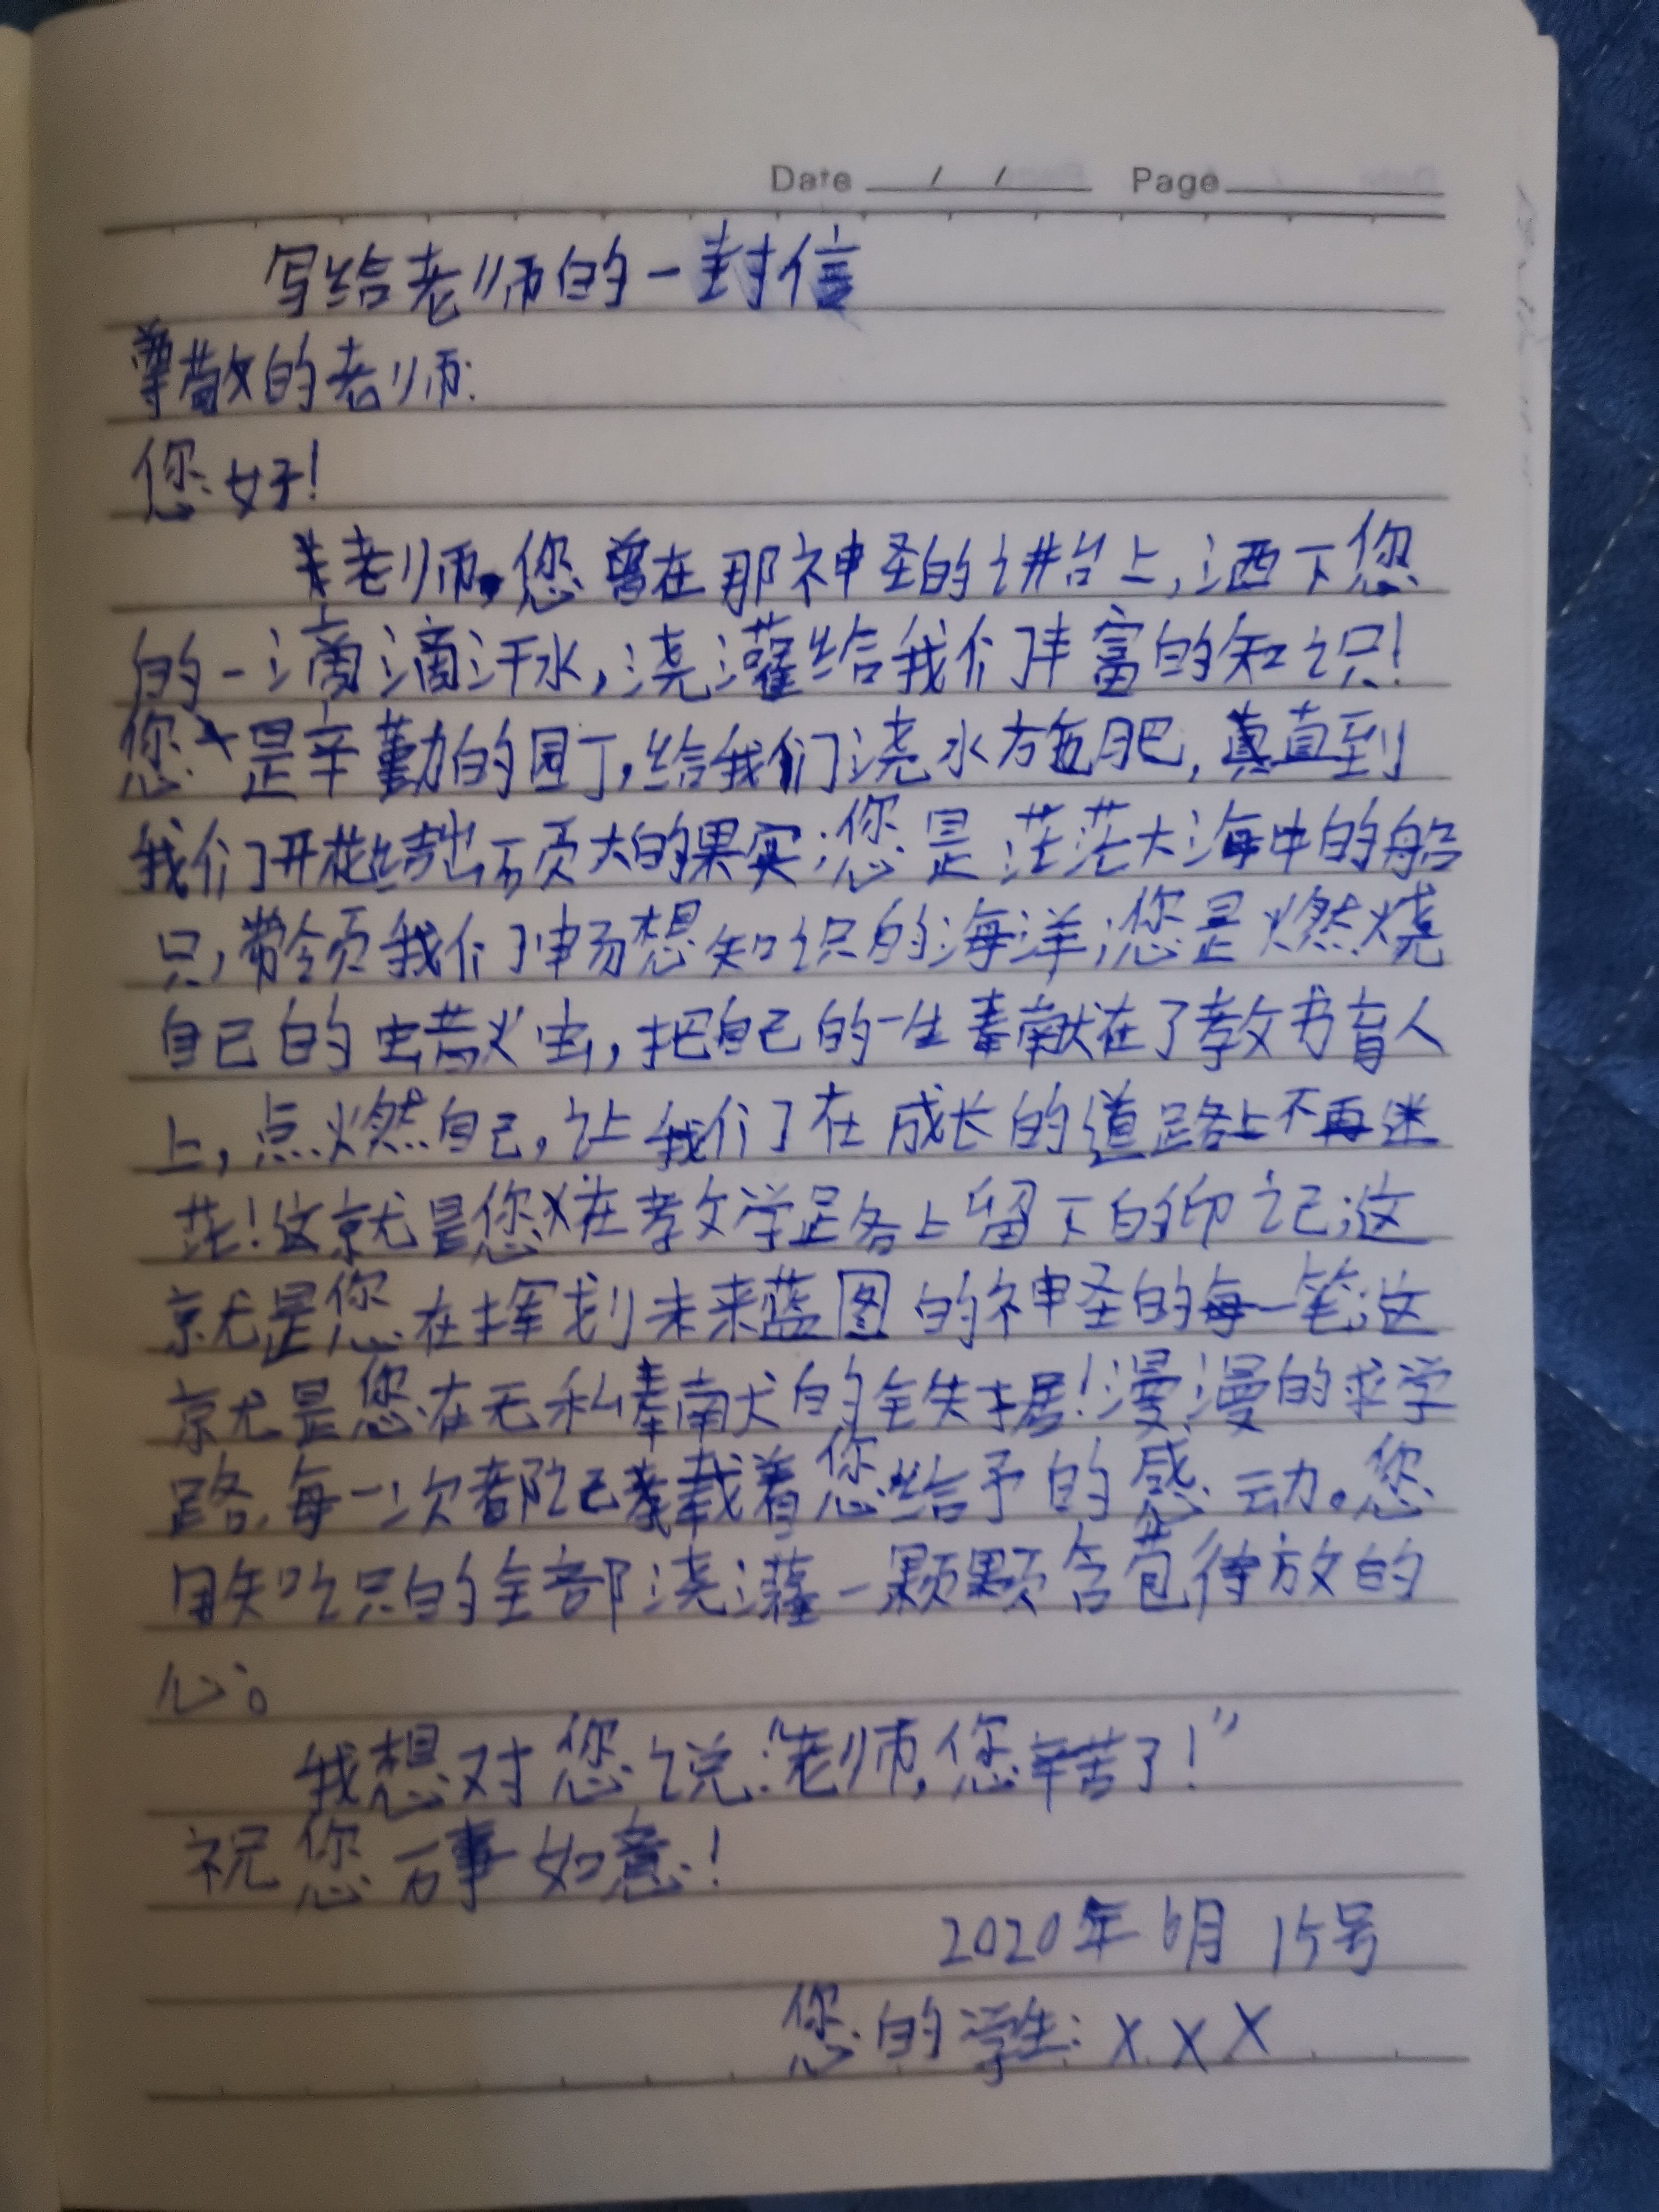 Date / / Page
写给老师的一封信
尊敬的老师:
您好!
老师,您曾在那神圣的讲台上,洒下您
的一滴滴汗水,浇灌给我们丰富的知识!
您是辛勤的园丁,给我们浇水施肥,直到
我们开花结出硕大的果实;您是茫茫大海中的船
只,带领我们畅想知识的海洋;您是燃烧
自己的萤火虫,把自己的一生奉献在了教书育人
上,点燃自己,让我们在成长的道路上不再迷
茫!这就是您在教学路上留下的印记;这
就是您在挥划未来蓝图的神圣的每一笔;这
就是您在无私奉献的!漫漫的求学
路,每一次都记载着您给予的感动。您
用知识的全部浇灌一颗颗含苞待放的
心。
我想对您说:"老师,您辛苦了!"
祝您万事如意!
2020年6月15号
您的学生:XXX